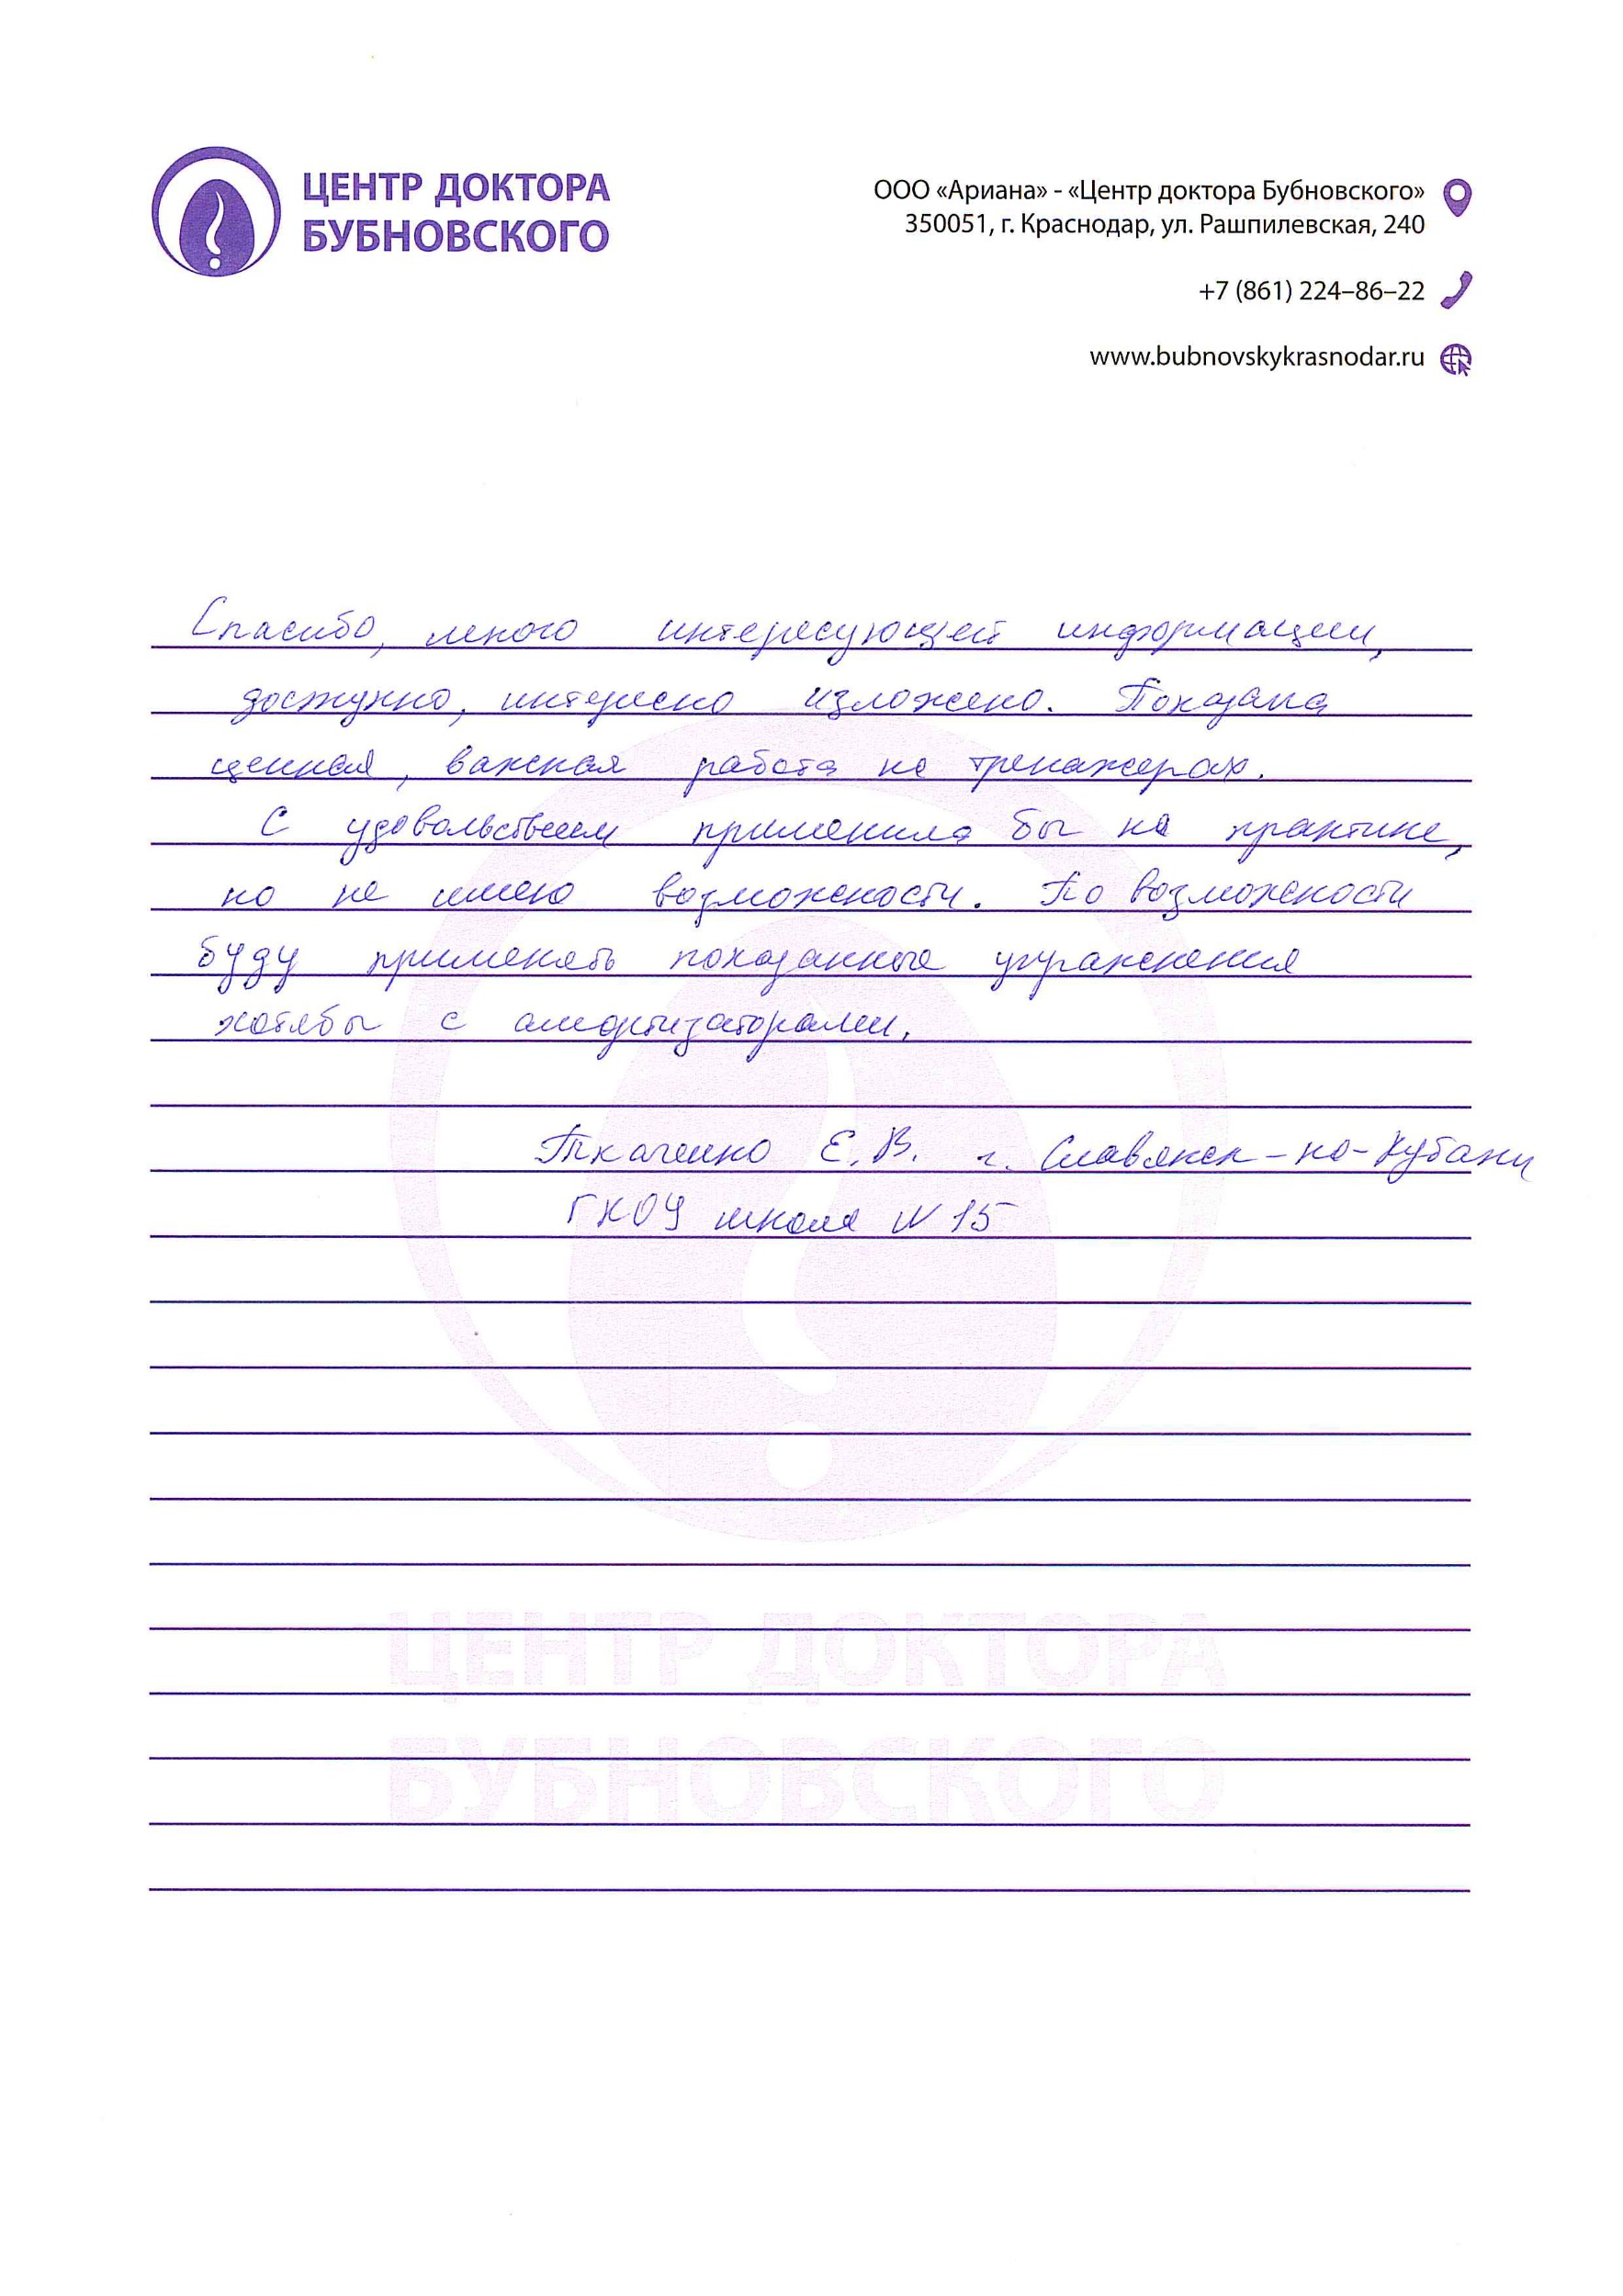 ЦЕНТР ДОКТОРА
БУБНОВСКОГО
ООО «Ариана» - «Центр доктора Бубновского»
350051, г. Краснодар, ул. Рашпилевская, 240
+7 (861) 224–86–22
www.bubnovskykrasnodar.ru
Спасибо, много интересующей информации,
доступно, интересно изложено. Показана
ценная, важная работа на тренажерах.
С удовольствием применила бы на практике,
но не имею возможности. По возможности
буду применять показанные упражнения
хотябы с амортизаторами.
Ткаченко Е.В. г. Славянск-на-Кубани
ГКОУ школа N 15
ЦЕНТР ДОКТОРА
БУБНОВСКОГО